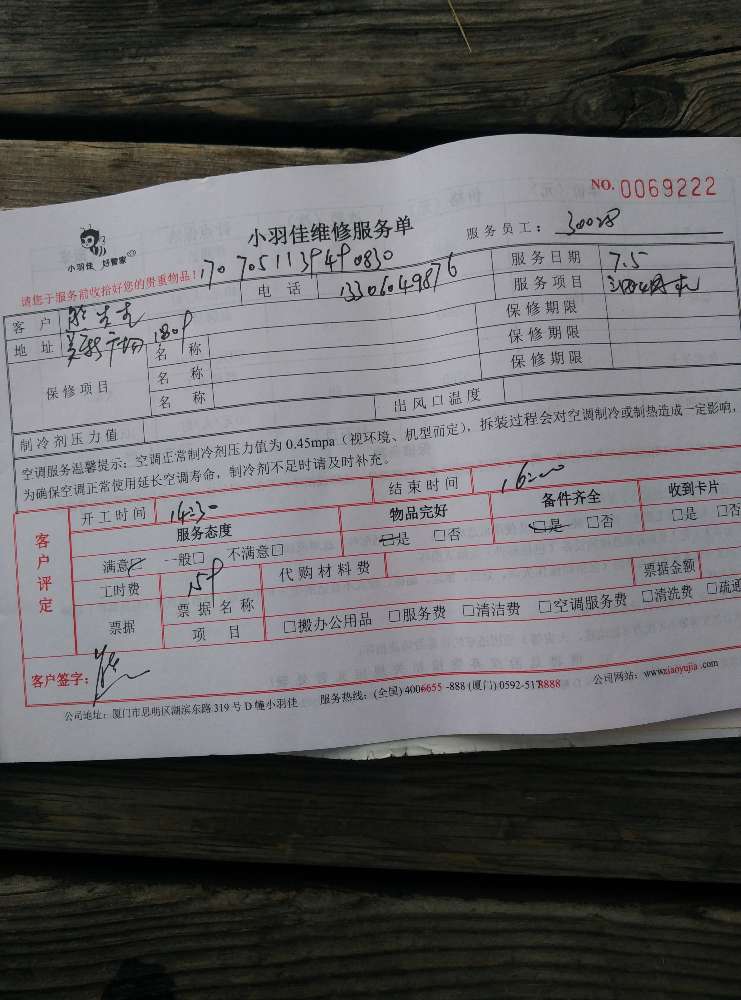 NO. 0069222
小羽佳 好管家
小羽佳维修服务单
服务员工： 30028
请您于服务前收拾好您的贵重物品！
客 户 电 话 13306049876 服务日期 7.5
地 址 服务项目
保修项目 名 称 保修期限
名 称 保修期限
名 称 保修期限
制冷剂压力值 出风口温度
空调服务温馨提示：空调正常制冷剂压力值为 0.45mpa（视环境、机型而定），拆装过程会对空调制冷或制热造成一定影响，
为确保空调正常使用延长空调寿命，制冷剂不足时请及时补充。
客户评定
开工时间 14:30 结束时间 16:00
服务态度 物品完好 备件齐全 收到卡片
满意□ 一般□ 不满意□ □是 □否 □是 □否 □是 □否
工时费 代购材料费
票据 票据名称 票据金额
项 目 □搬办公用品 □服务费 □清洁费 □空调服务费 □清洗费 □疏通
客户签字：
公司地址：厦门市思明区湖滨东路 319 号 D 幢小羽佳 服务热线：(全国) 4006655 -888 (厦门) 0592-5178888 公司网站：www.xiaoyujia .com